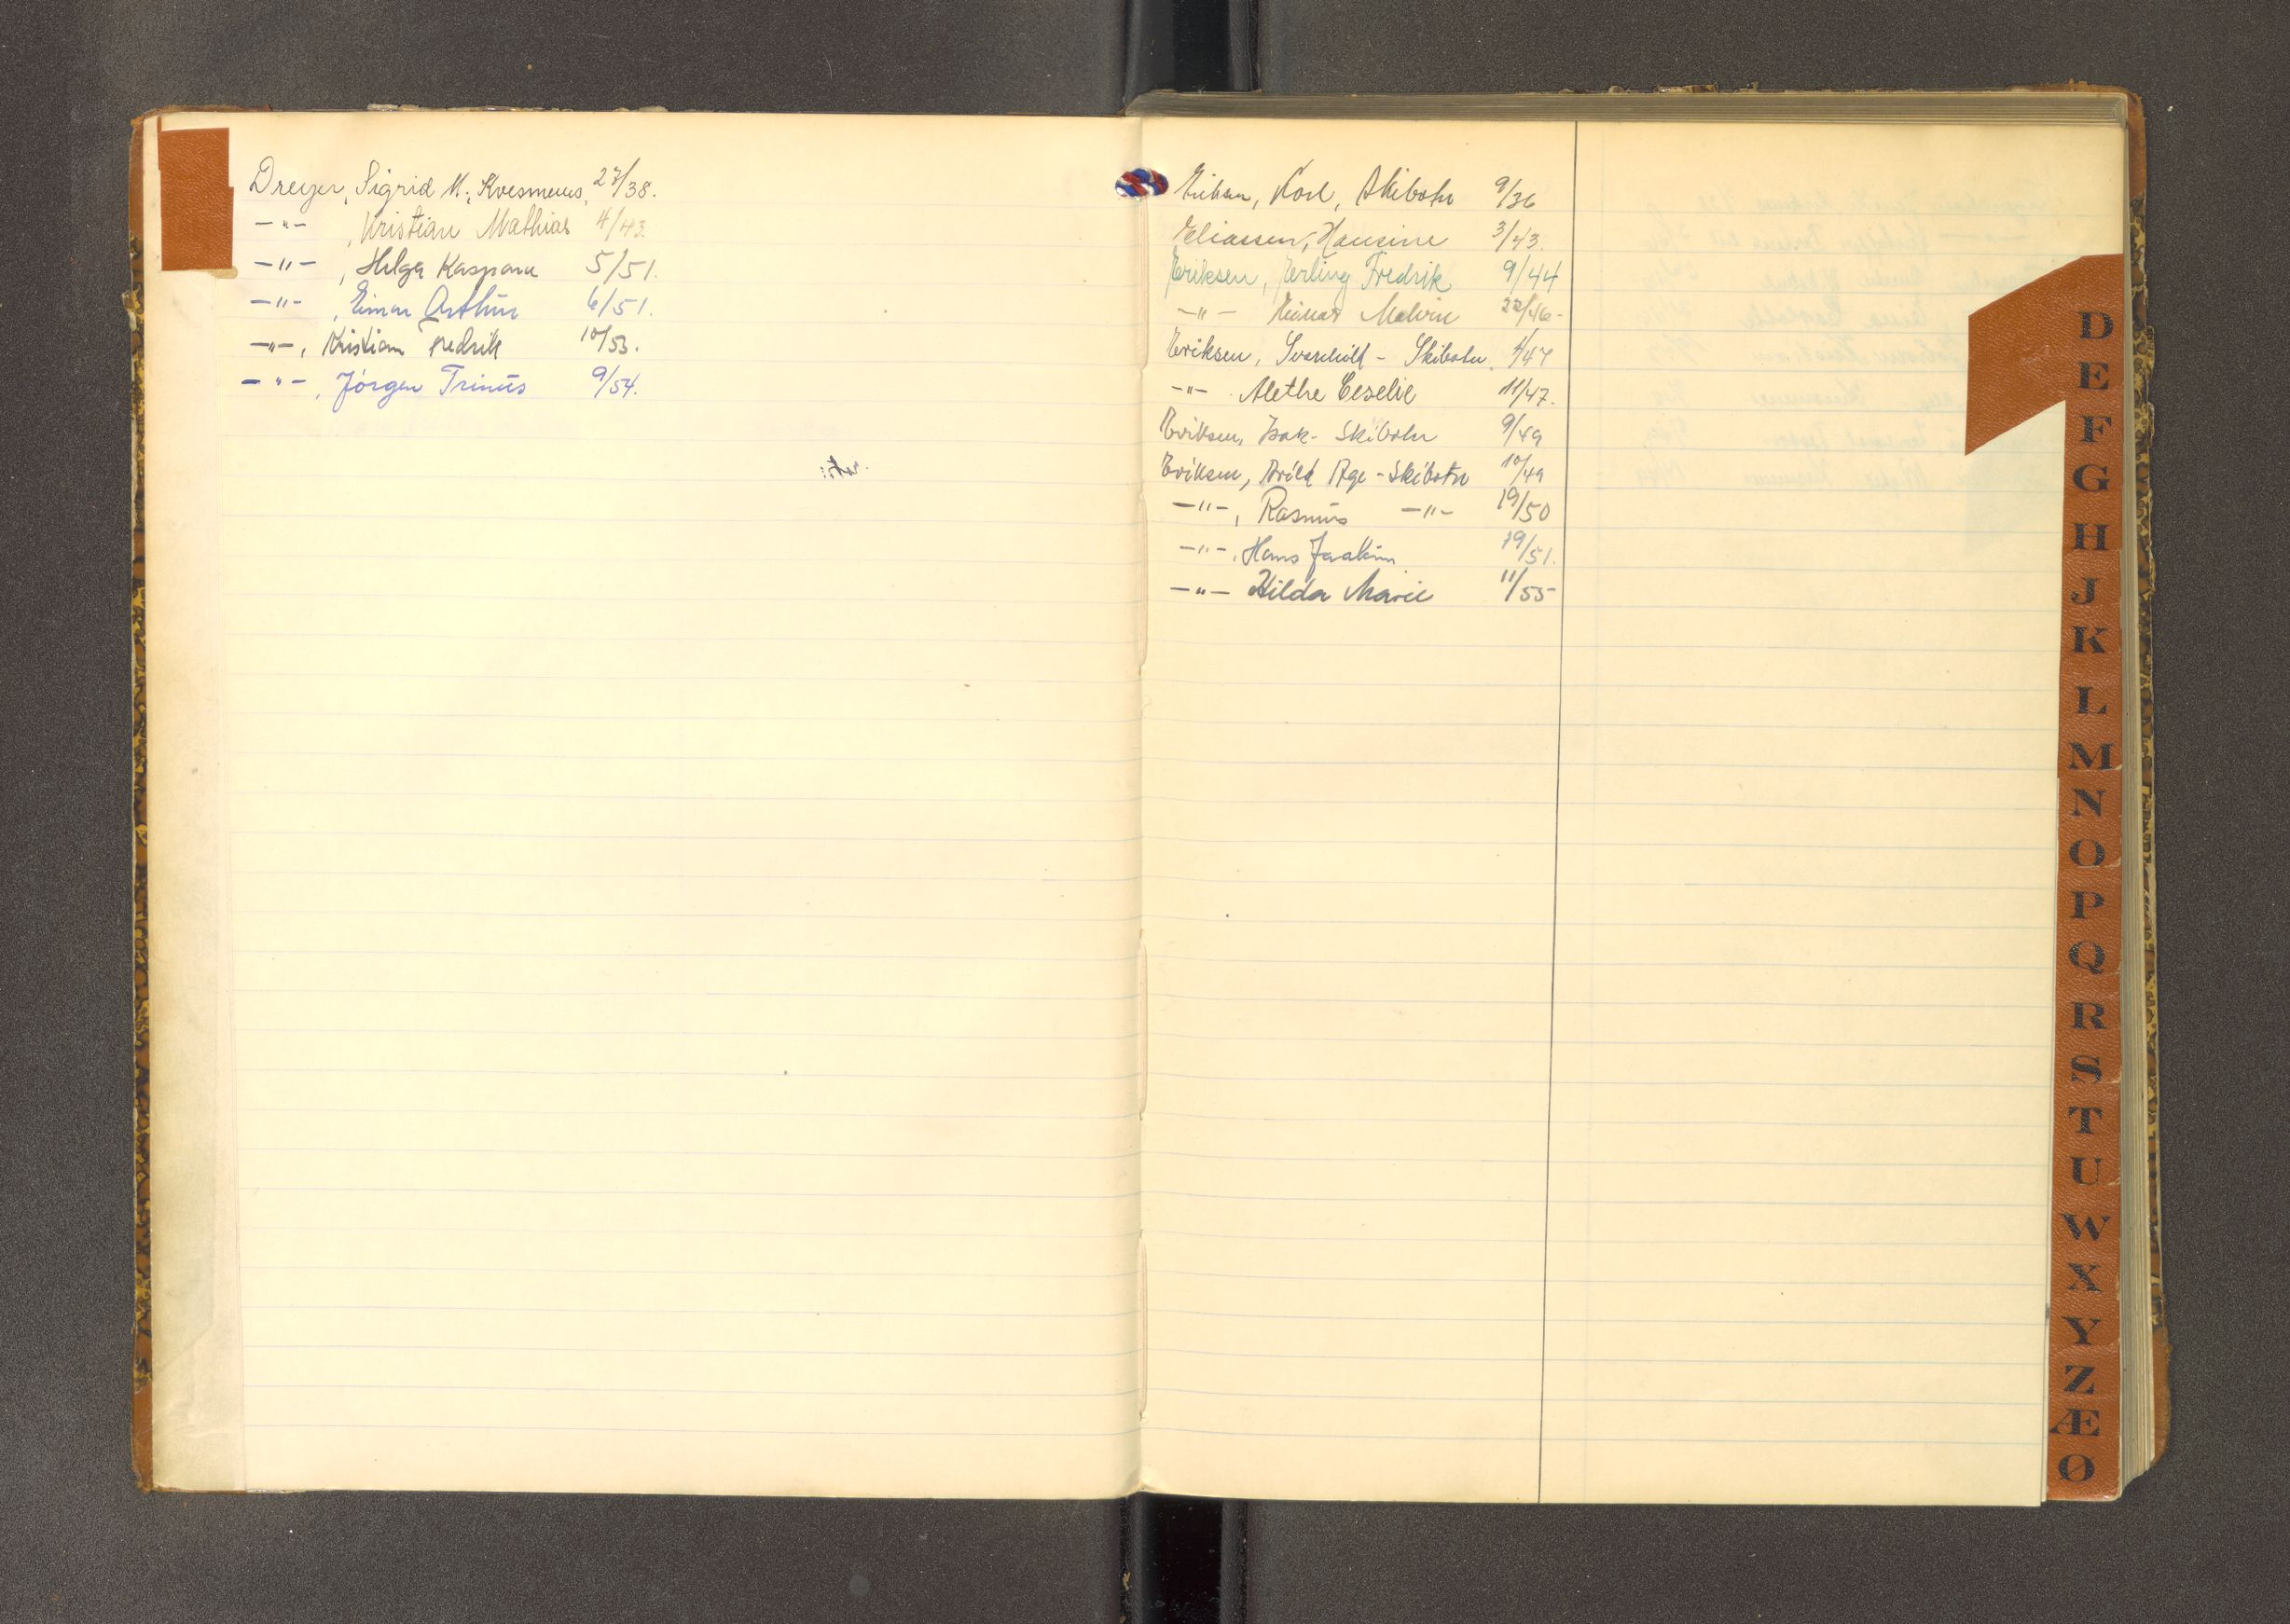 Dreyer, Sigrid M., Kvesmenes, 27/38.
-"- , Kristian Mathias 4/43
-"- , Helga Kaspara 5/51.
-"- , Einar Arthur 6/51.
-"-, Kristian Fredrik 10/53.
-"-, Jørgen Trinus 9/54.
Eriksen, Karl, Skibotn 9/36
Eliassen, Hansine 3/43.
Eriksen, Erling Fredrik 9/44
-"- Melvin 22/46-
Eriksen, - Skibotn. 4/47
-"- Alethe 11/47.
Eriksen, Isak - Skibotn 9/49
Eriksen, Arild Age - Skibotn 10/49
-"-, Rasmus -"- 19/50
-"-, Hans Joakim 19/51.
-"- Hilda Marie 11/55
D
E
F
G
H
J
K
L
M
N
O
P
Q
R
S
T
U
W
X
Y
Z
Æ
Ø